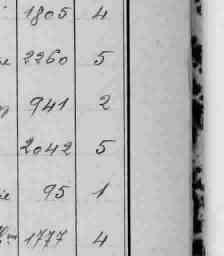 1805 4
2260 5
941 2
2042 5
95 1
1777 4